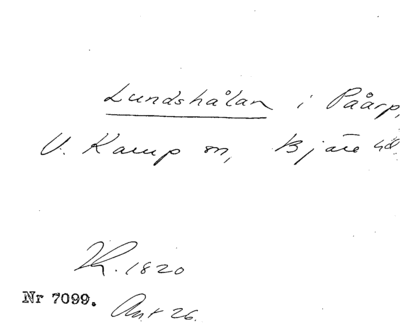 Lundshålan i Påarp,
V. Karup sn, Bjäre hd.
Kr. 1820
Nr 7099. Avr 26.